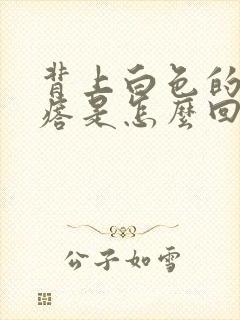 背上白色的
痞是怎麼回
公子如雪